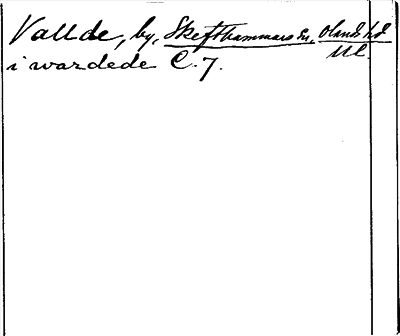 Vallde, by, Skefthammars sn, Olands hd Ul.
i wardede C. 7.